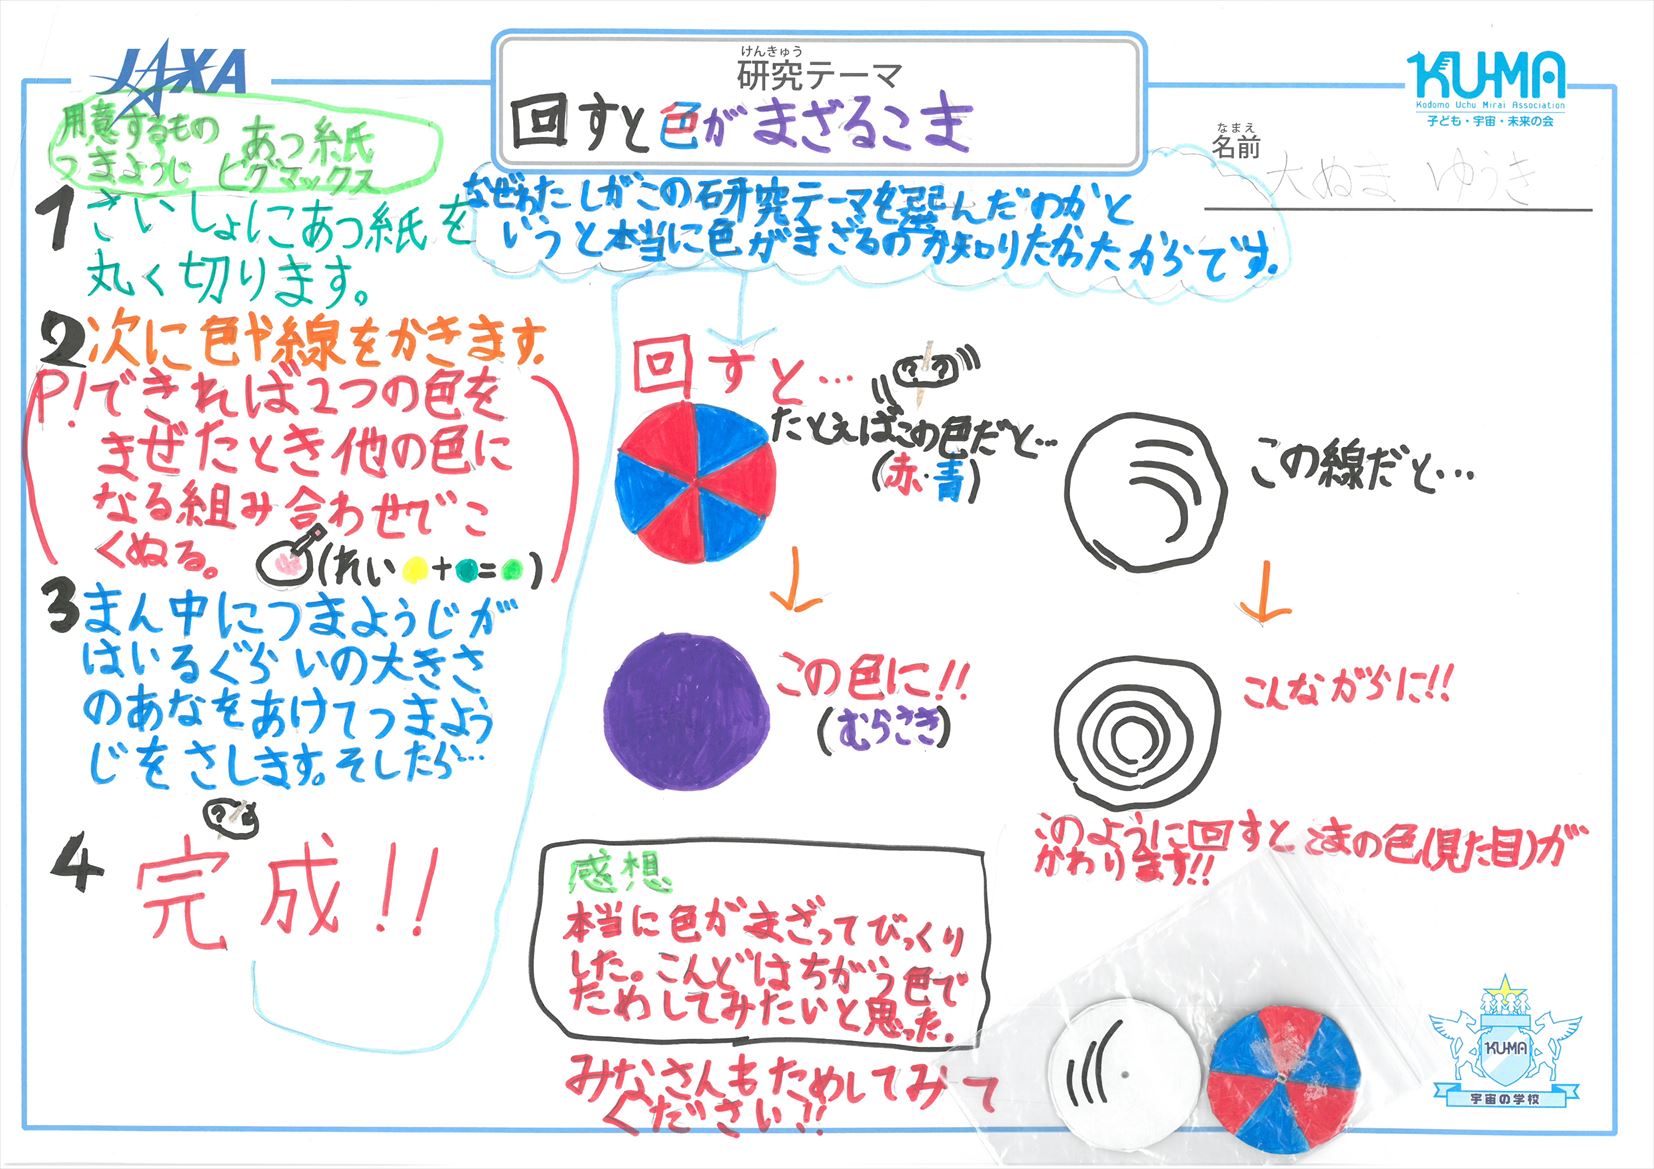 JAXA
けんきゅう
研究テーマ
回すと色がまざるこま
KU-MA
Kodomo Uchu Mirai Association
子ども・宇宙・未来の会
なまえ
名前
大ぬま ゆうき
用意するもの あつ紙
つまようじ ピグマックス
なぜわたしがこの研究テーマを選んだのかと
いうと本当に色がまざるのか知りたかったからです。
1 さいしょにあつ紙を
丸く切ります。
2 次に色や線をかきます。
P!できれば2つの色を
まぜたとき他の色に
なる組み合わせでこ
くぬる。
(れい + = )
3 まん中につまようじが
はいるぐらいの大きさ
のあなをあけてつまよう
じをさします。そしたら…
4 完成!!
回すと…
たとえばこの色だと…
(赤・青)
この色に!!
(むらさき)
この線だと…
こんながらに!!
このように回すとこまの色(見た目)が
かわります!!
感想
本当に色がまざってびっくり
した。こんどはちがう色で
ためしてみたいと思った。
みなさんもためしてみて
ください!!
KU-MA
宇宙の学校